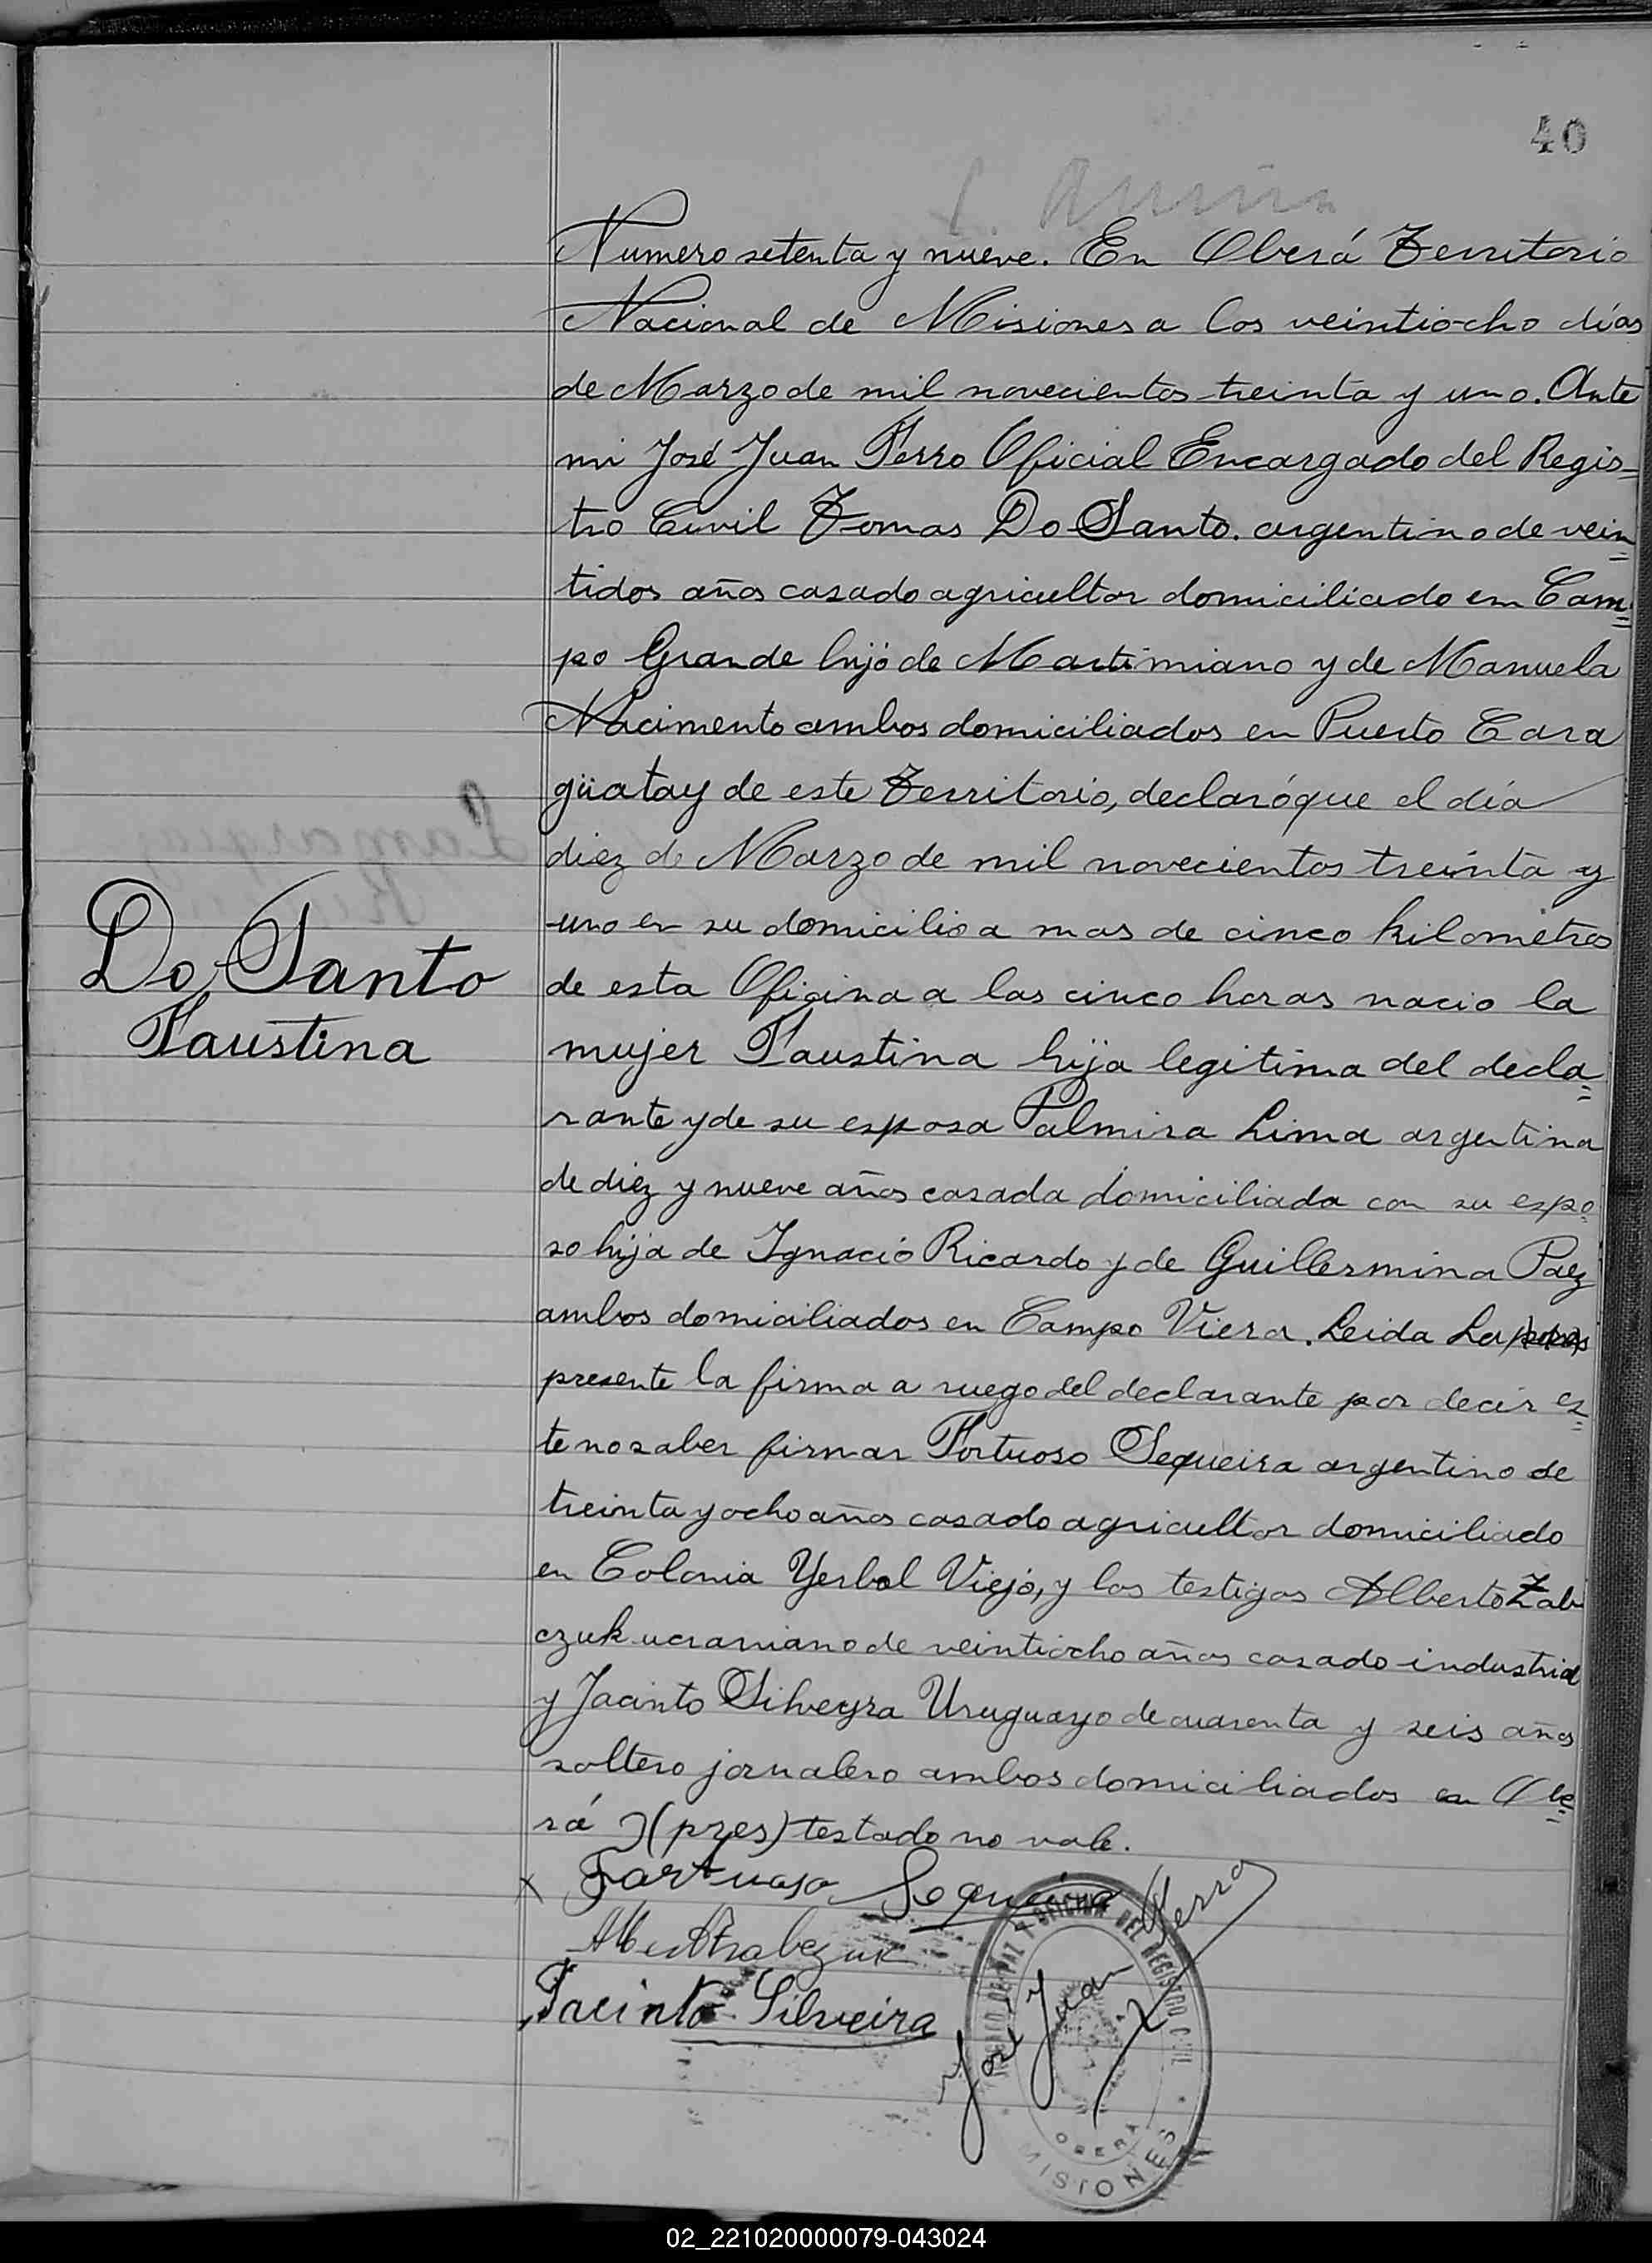 40
Numero setenta y nueve. En Oberá Territorio
Nacional de Misiones a los veintiocho días
de Marzo de mil novecientos treinta y uno. Ante
mi José Juan Ferro Oficial Encargado del Regis=
tro Civil Tomas Do Santo. argentino de vein=
tidos años casado agricultor domiciliado en Cam=
po Grande hijo de Martimiano y de Manuela
Nacimento ambos domiciliados en Puerto Cara
güatay de este Territorio, declaró que el día
diez de Marzo de mil novecientos treinta y
uno en su domicilio a mas de cinco kilometros
Do Santo
Faustina
de esta Oficina a las cinco horas nacio la
mujer Faustina hija legitima del decla=
rante y de su esposa Palmira Lima argentina
de diez y nueve años casada domiciliada con su espo=
so hija de Ignacio Ricardo y de Guillermina Paez
ambos domiciliados en Campo Viera. Leida La
presente la firma a ruego del declarante por decir es=
te no saber firmar Fortuoso Sequeira argentino de
treinta y ocho años casado agricultor domiciliado
en Colonia Yerbal Viejo, y los testigos Alberto Zab
czuk ucraniano de veintiocho años casado industrial
y Jacinto Silveyra Uruguayo de cuarenta y seis años
soltero jornalero ambos domiciliados en Obe=
rá (pres) testado no vale.
x Fortuoso Sequeira
Jacinto Silveira
José Juan Ferro
JUZGADO DE PAZ Y OFICINA DEL REGISTRO CIVIL
OBERA
MISIONES
02_221020000079-043024